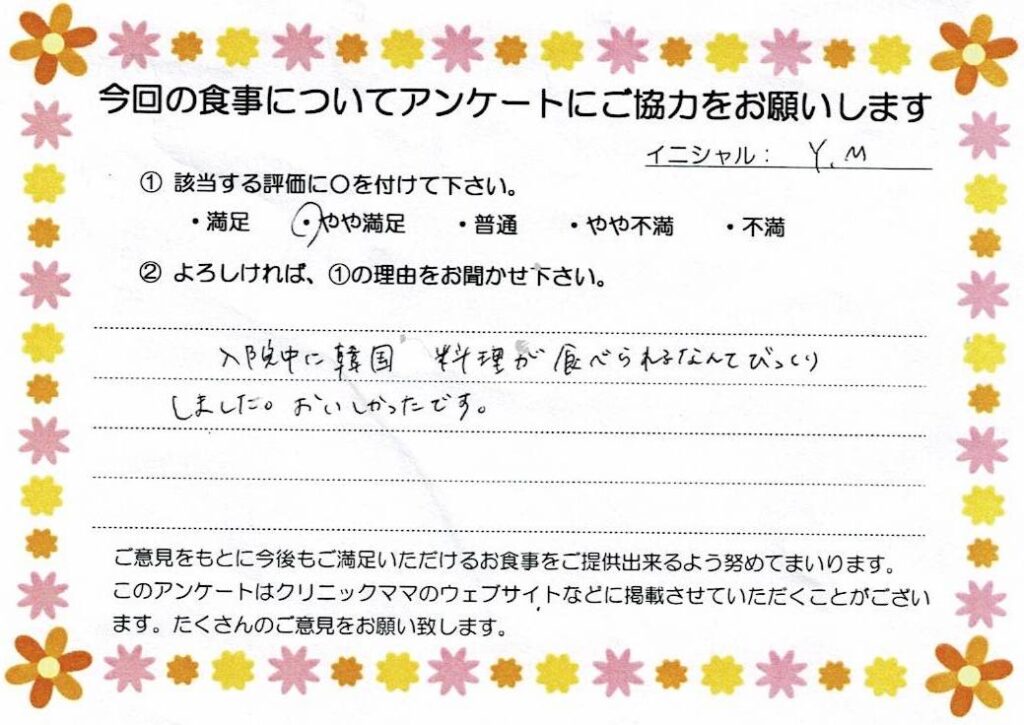 今回の食事についてアンケートにご協力をお願いします
イニシャル： Y.M
① 該当する評価に〇を付けて下さい。
・満足 ・やや満足 ・普通 ・やや不満 ・不満
② よろしければ、①の理由をお聞かせ下さい。
入院中に韓国 料理が食べられるなんてびっくり
しました。おいしかったです。
ご意見をもとに今後もご満足いただけるお食事をご提供出来るよう努めてまいります。
このアンケートはクリニックママのウェブサイトなどに掲載させていただくことがござい
ます。たくさんのご意見をお願い致します。